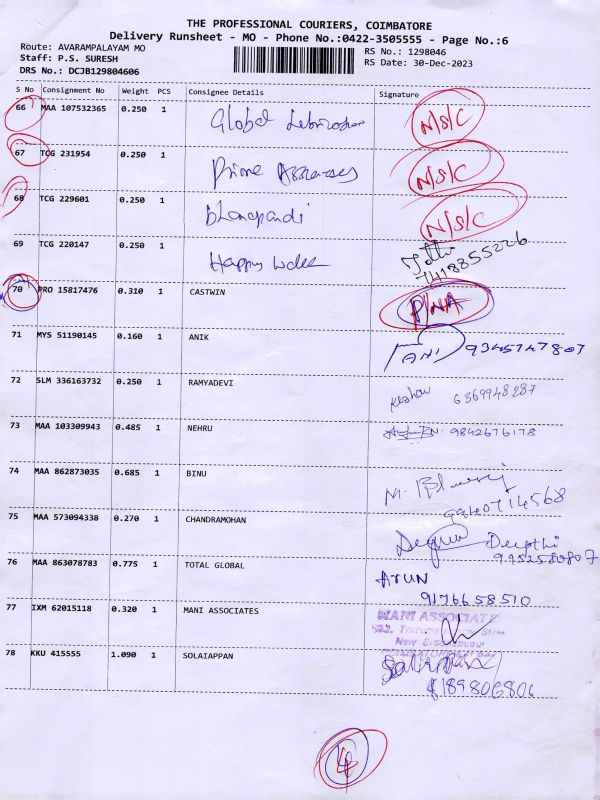 THE PROFESSIONAL COURIERS, COIMBATORE
Delivery Runsheet - MO - Phone No.:0422-3505555 - Page No.:6
Route: AVARAMPALAYAM MO RS No.: 1298046
Staff: P.S. SURESH RS Date: 30-Dec-2023
DRS No.: DCJB129804606
S No Consignment No Weight PCS Consignee Details Signature
66 MAA 107532365 0.250 1 Global N/S/C
67 TCG 231954 0.250 1 Prime N/S/C
68 TCG 229601 0.250 1 N/S/C
69 TCG 220147 0.250 1 Happy
7418855226
70 PRO 15817476 0.310 1 CASTWIN P/NA
71 MYS 51190145 0.160 1 ANIK ANI 9345747807
72 SLM 336163732 0.250 1 RAMYADEVI 6369948287
73 MAA 103309943 0.485 1 NEHRU 9842676178
74 MAA 862873035 0.685 1 BINU M.
9940714568
75 MAA 573094338 0.270 1 CHANDRAMOHAN Deepthi
9952580807
76 MAA 863078783 0.775 1 TOTAL GLOBAL ARUN
9176658510
77 IXM 62015118 0.320 1 MANI ASSOCIATES MANI ASSOCIATE
New
78 KKU 415555 1.090 1 SOLAIAPPAN
4